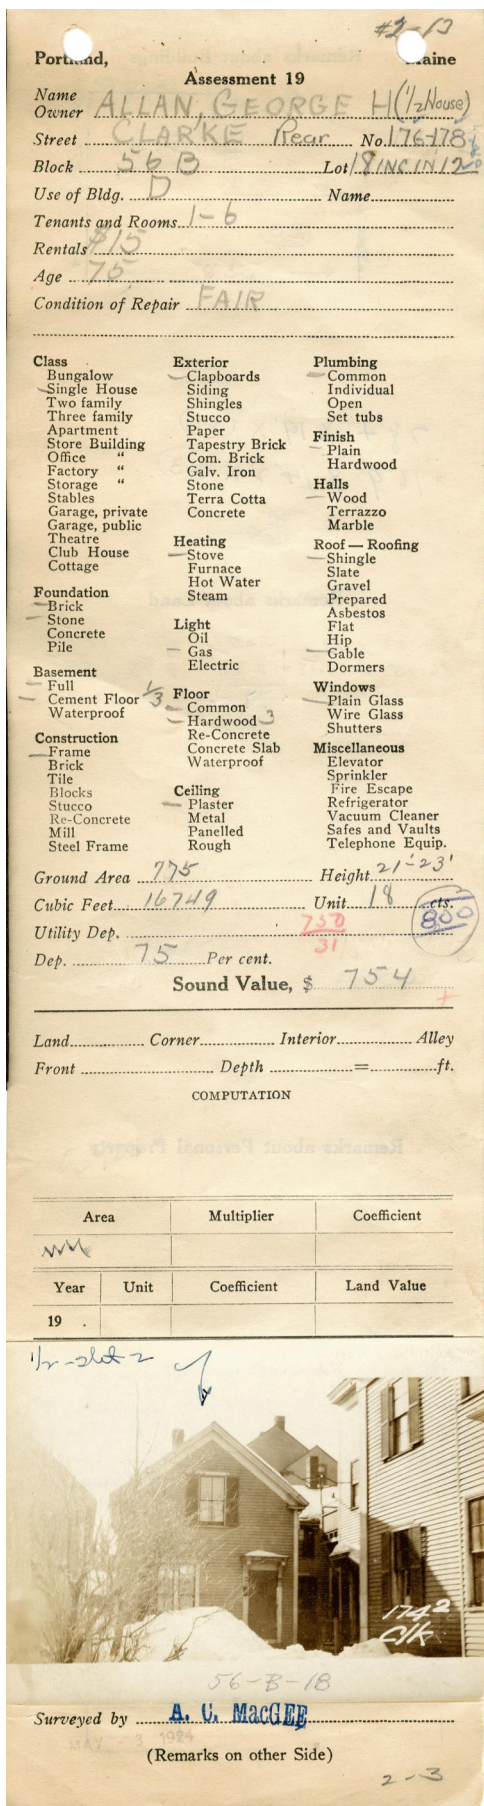 #2-13
Portland, Maine
Assessment 19
Name
Owner ALLAN, GEORGE H (1/2 House)
Street CLARKE Rear No. 176-178
Block 56 B Lot 18 INC IN 12
Use of Bldg. D Name
Tenants and Rooms 1-6
Rentals $15
Age 75
Condition of Repair FAIR
Class
Bungalow
Single House
Two family
Three family
Apartment
Store Building
Office "
Factory "
Storage "
Stables
Garage, private
Garage, public
Theatre
Club House
Cottage
Foundation
Brick
Stone
Concrete
Pile
Basement
Full
Cement Floor 1/3
Waterproof
Construction
Frame
Brick
Tile
Blocks
Stucco
Re-Concrete
Mill
Steel Frame
Exterior
Clapboards
Siding
Shingles
Stucco
Paper
Tapestry Brick
Com. Brick
Galv. Iron
Stone
Terra Cotta
Concrete
Heating
Stove
Furnace
Hot Water
Steam
Light
Oil
Gas
Electric
Floor
Common
Hardwood 3
Re-Concrete
Concrete Slab
Waterproof
Ceiling
Plaster
Metal
Panelled
Rough
Plumbing
Common
Individual
Open
Set tubs
Finish
Plain
Hardwood
Halls
Wood
Terrazzo
Marble
Roof — Roofing
Shingle
Slate
Gravel
Prepared
Asbestos
Flat
Hip
Gable
Dormers
Windows
Plain Glass
Wire Glass
Shutters
Miscellaneous
Elevator
Sprinkler
Fire Escape
Refrigerator
Vacuum Cleaner
Safes and Vaults
Telephone Equip.
Ground Area 775 Height 21'-23'
Cubic Feet 16749 Unit 18 cts.
800
Utility Dep. 750
31
Dep. 75 Per cent.
Sound Value, $ 754
+
Land Corner Interior Alley
Front Depth = ft.
COMPUTATION
Area Multiplier Coefficient
Year Unit Coefficient Land Value
19 .
174 2
Clk
56-B-18
Surveyed by A. C. MacGEE
MAY 3 1924
(Remarks on other Side)
2-3